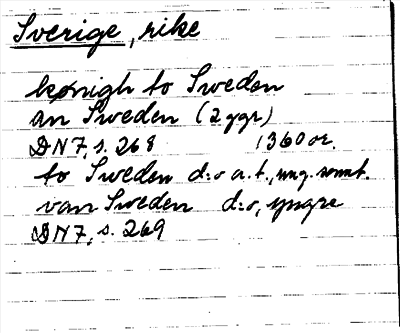 Sverige, rike
konigh to Sweden
an Sweden (2 ggr)
DN7, s. 268 1360 or.
to Sweden d:o a.t., ung. samt.
van Sweden d:o, yngre
DN7, s. 269